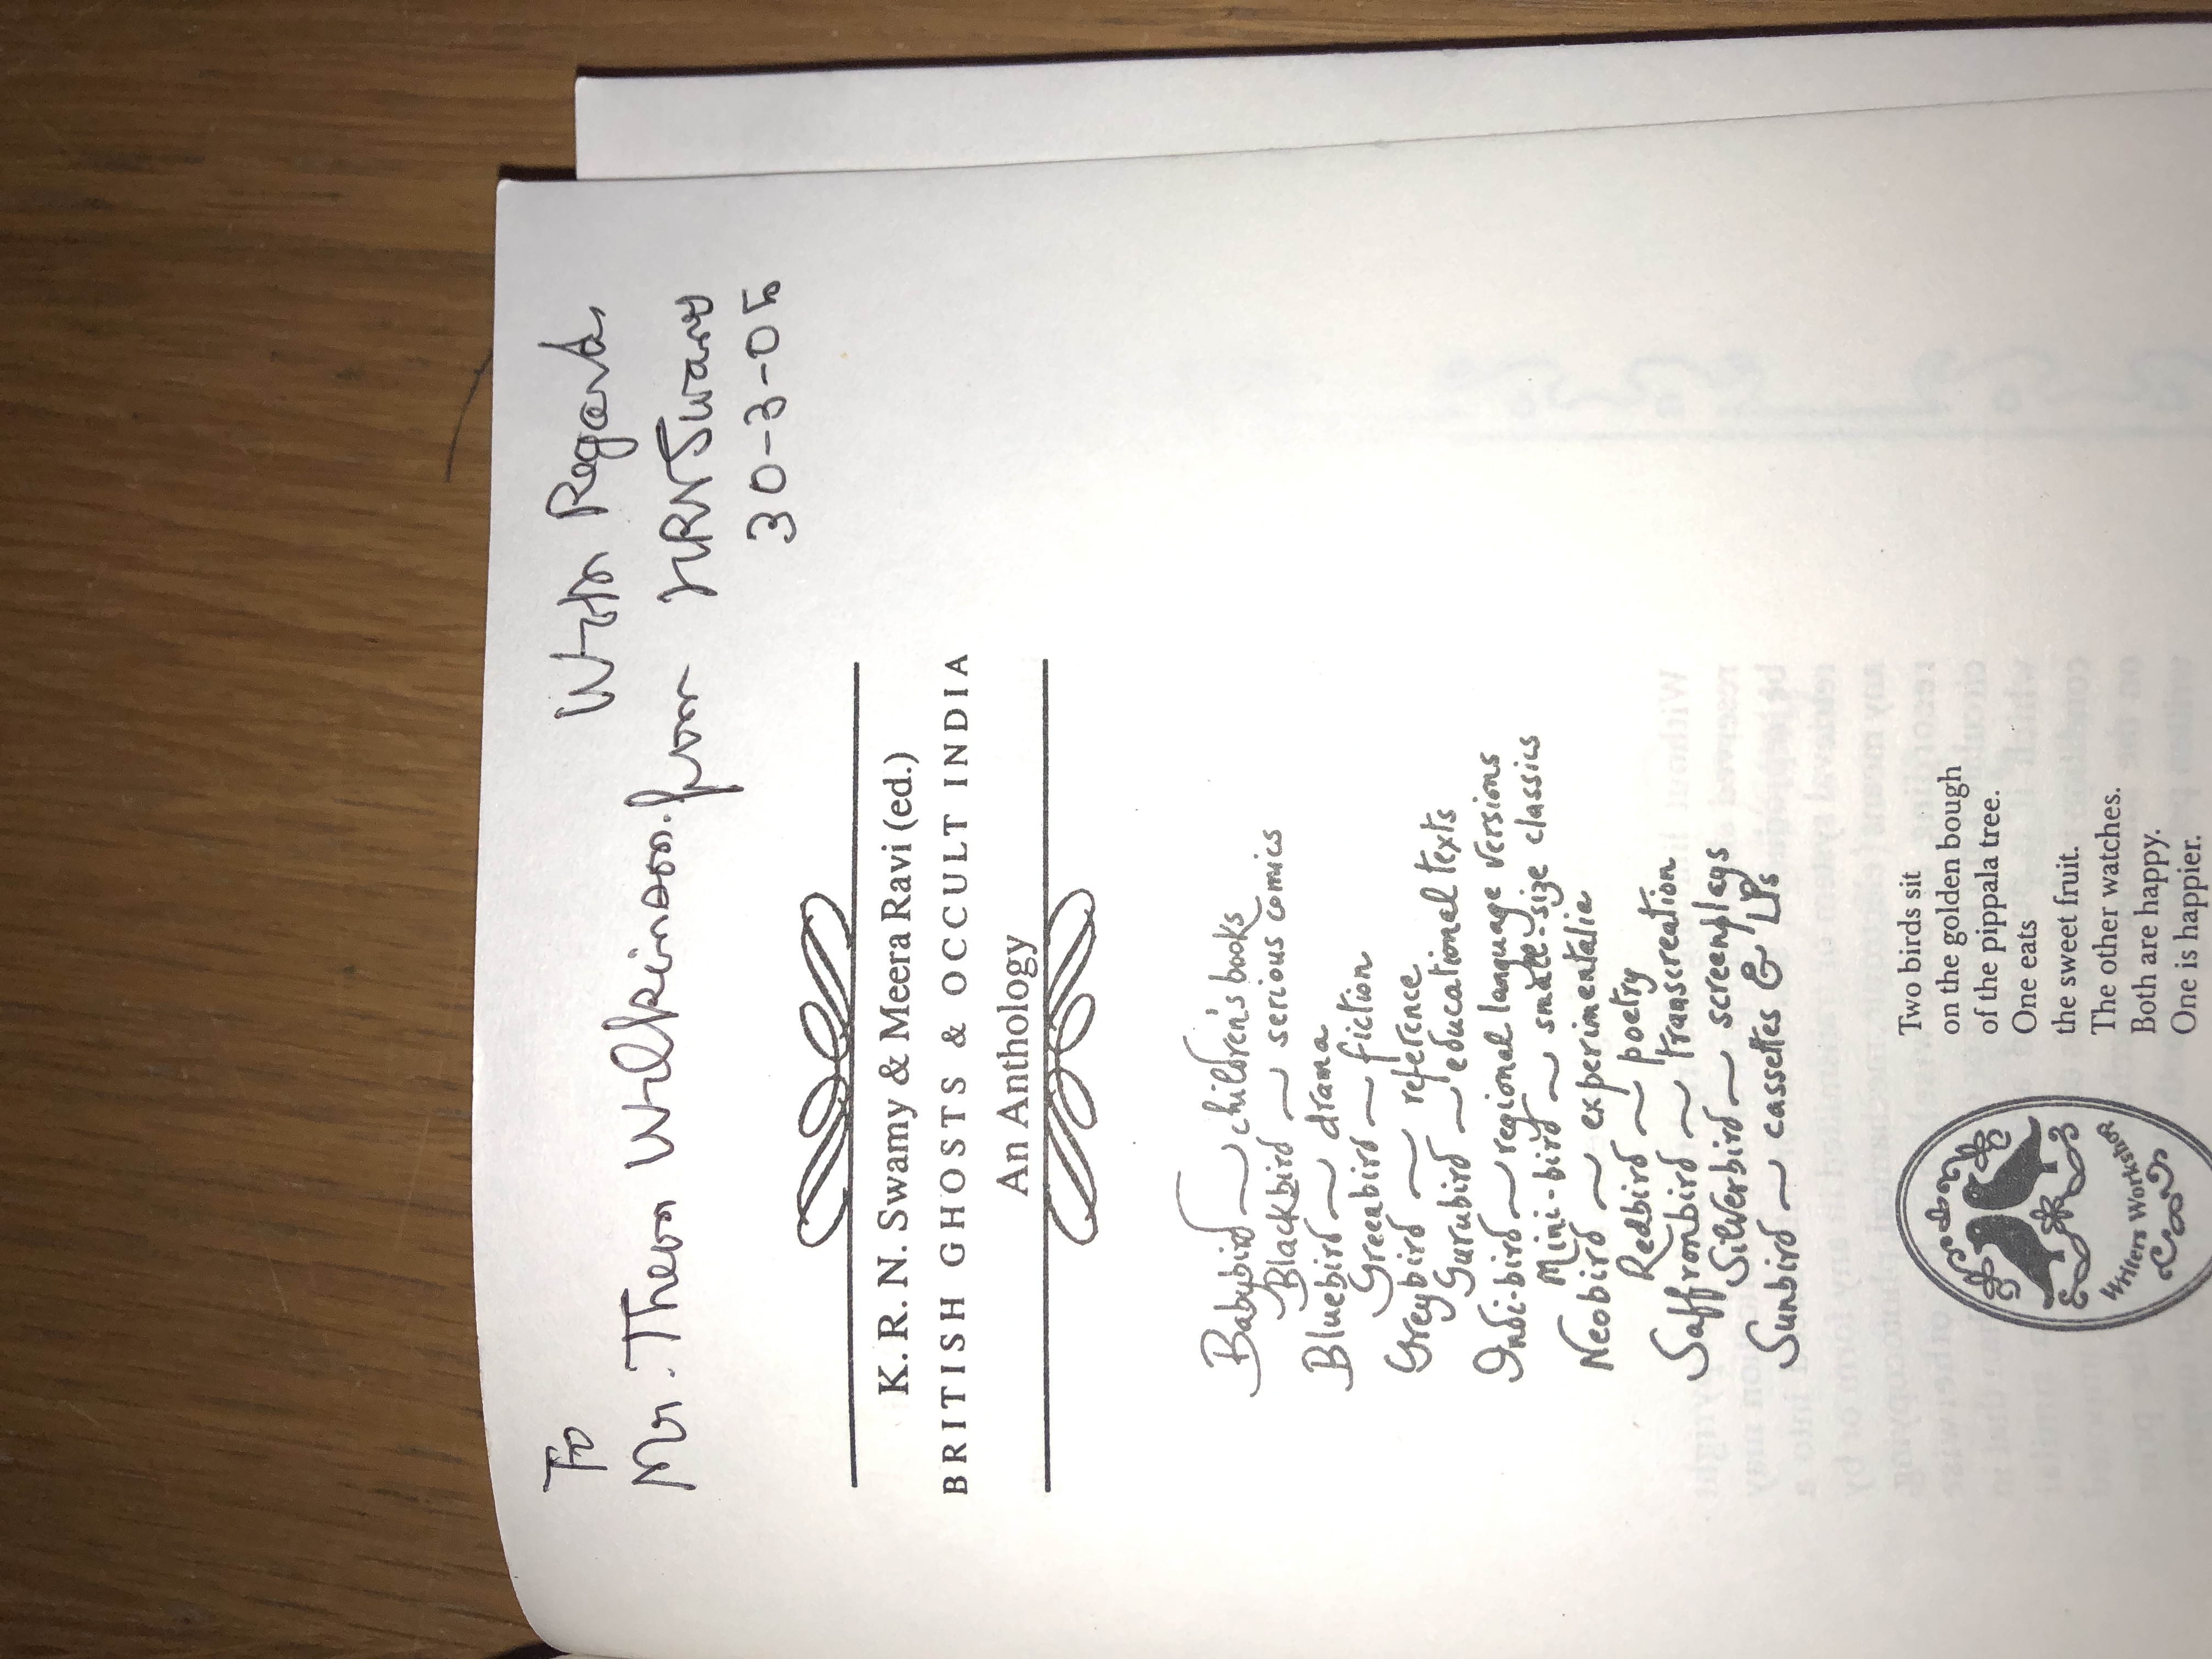 To With Regards
Mr. Theon Wilkinson. from KRNSwamy
30-3-05
K. R. N. Swamy & Meera Ravi (ed.)
BRITISH GHOSTS & OCCULT INDIA
An Anthology
Babybird ~ children's books
Blackbird ~ serious comics
Bluebird ~ drama
Greenbird ~ fiction
Greybird ~ reference
Gurubird ~ educational texts
Indi-bird ~ regional language versions
Mini-bird ~ small-size classics
Neobird ~ experimentalia
Redbird ~ poetry
Saffronbird ~ transcreation
Silverbird ~ screenplays
Sunbird ~ cassettes & LPs
Writers Workshop
Two birds sit
on the golden bough
of the pippala tree.
One eats
the sweet fruit.
The other watches.
Both are happy.
One is happier.